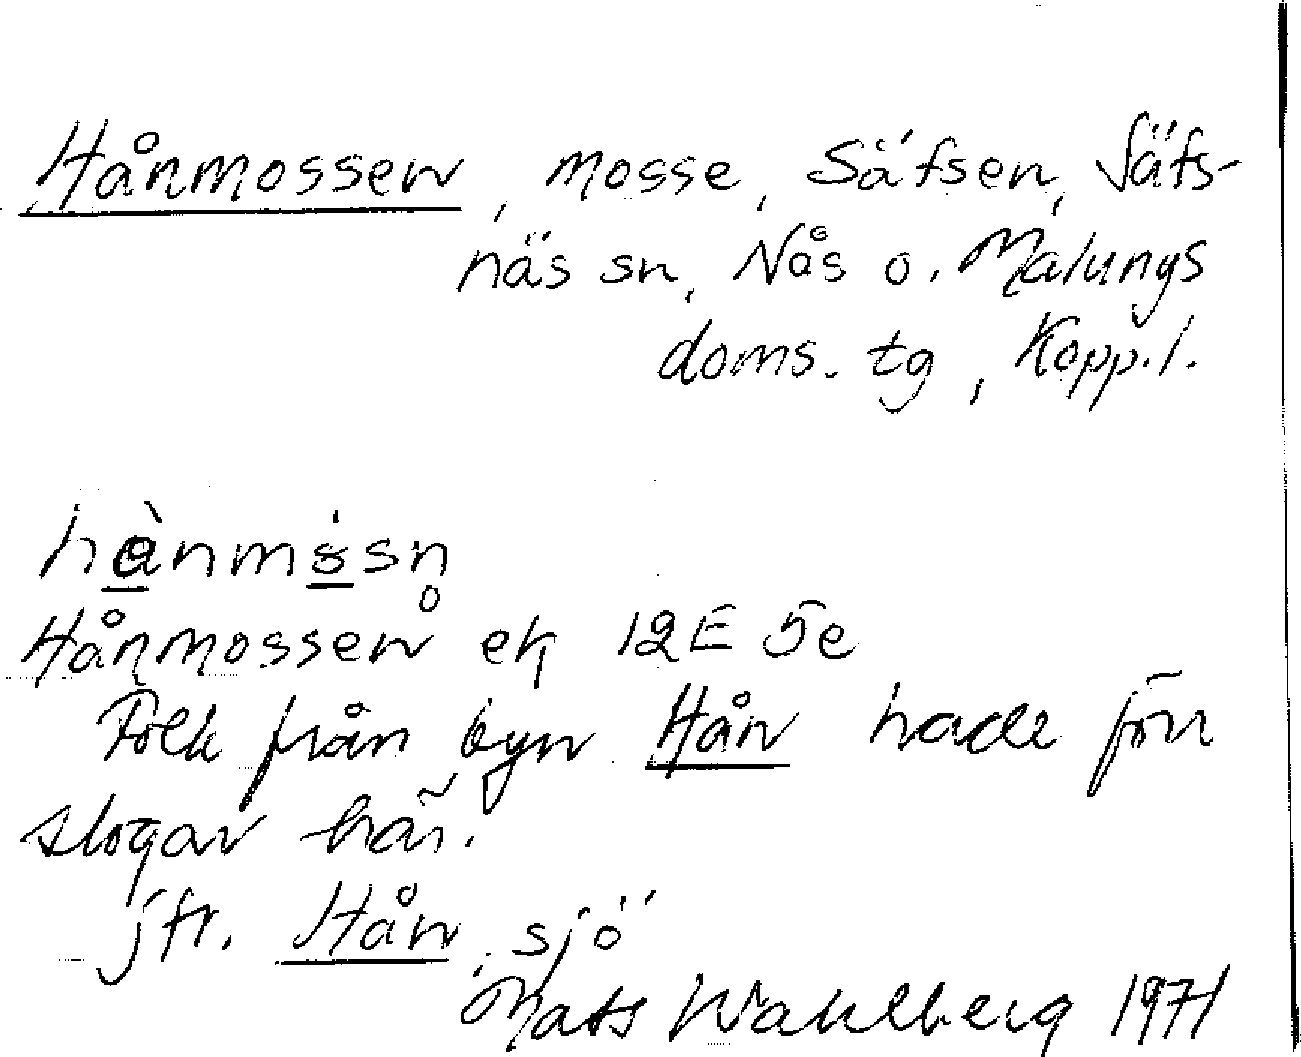 Hånmossen, mosse, Säfsen, Säfs-
näs sn, Nås o. Malungs
doms. tg, Kopp. l.
Hånmossen ek 12E 5e
Folk från byn Hån hade förr
slogar här.
jfr. Hån, sjö
Mats Wahlberg 1971